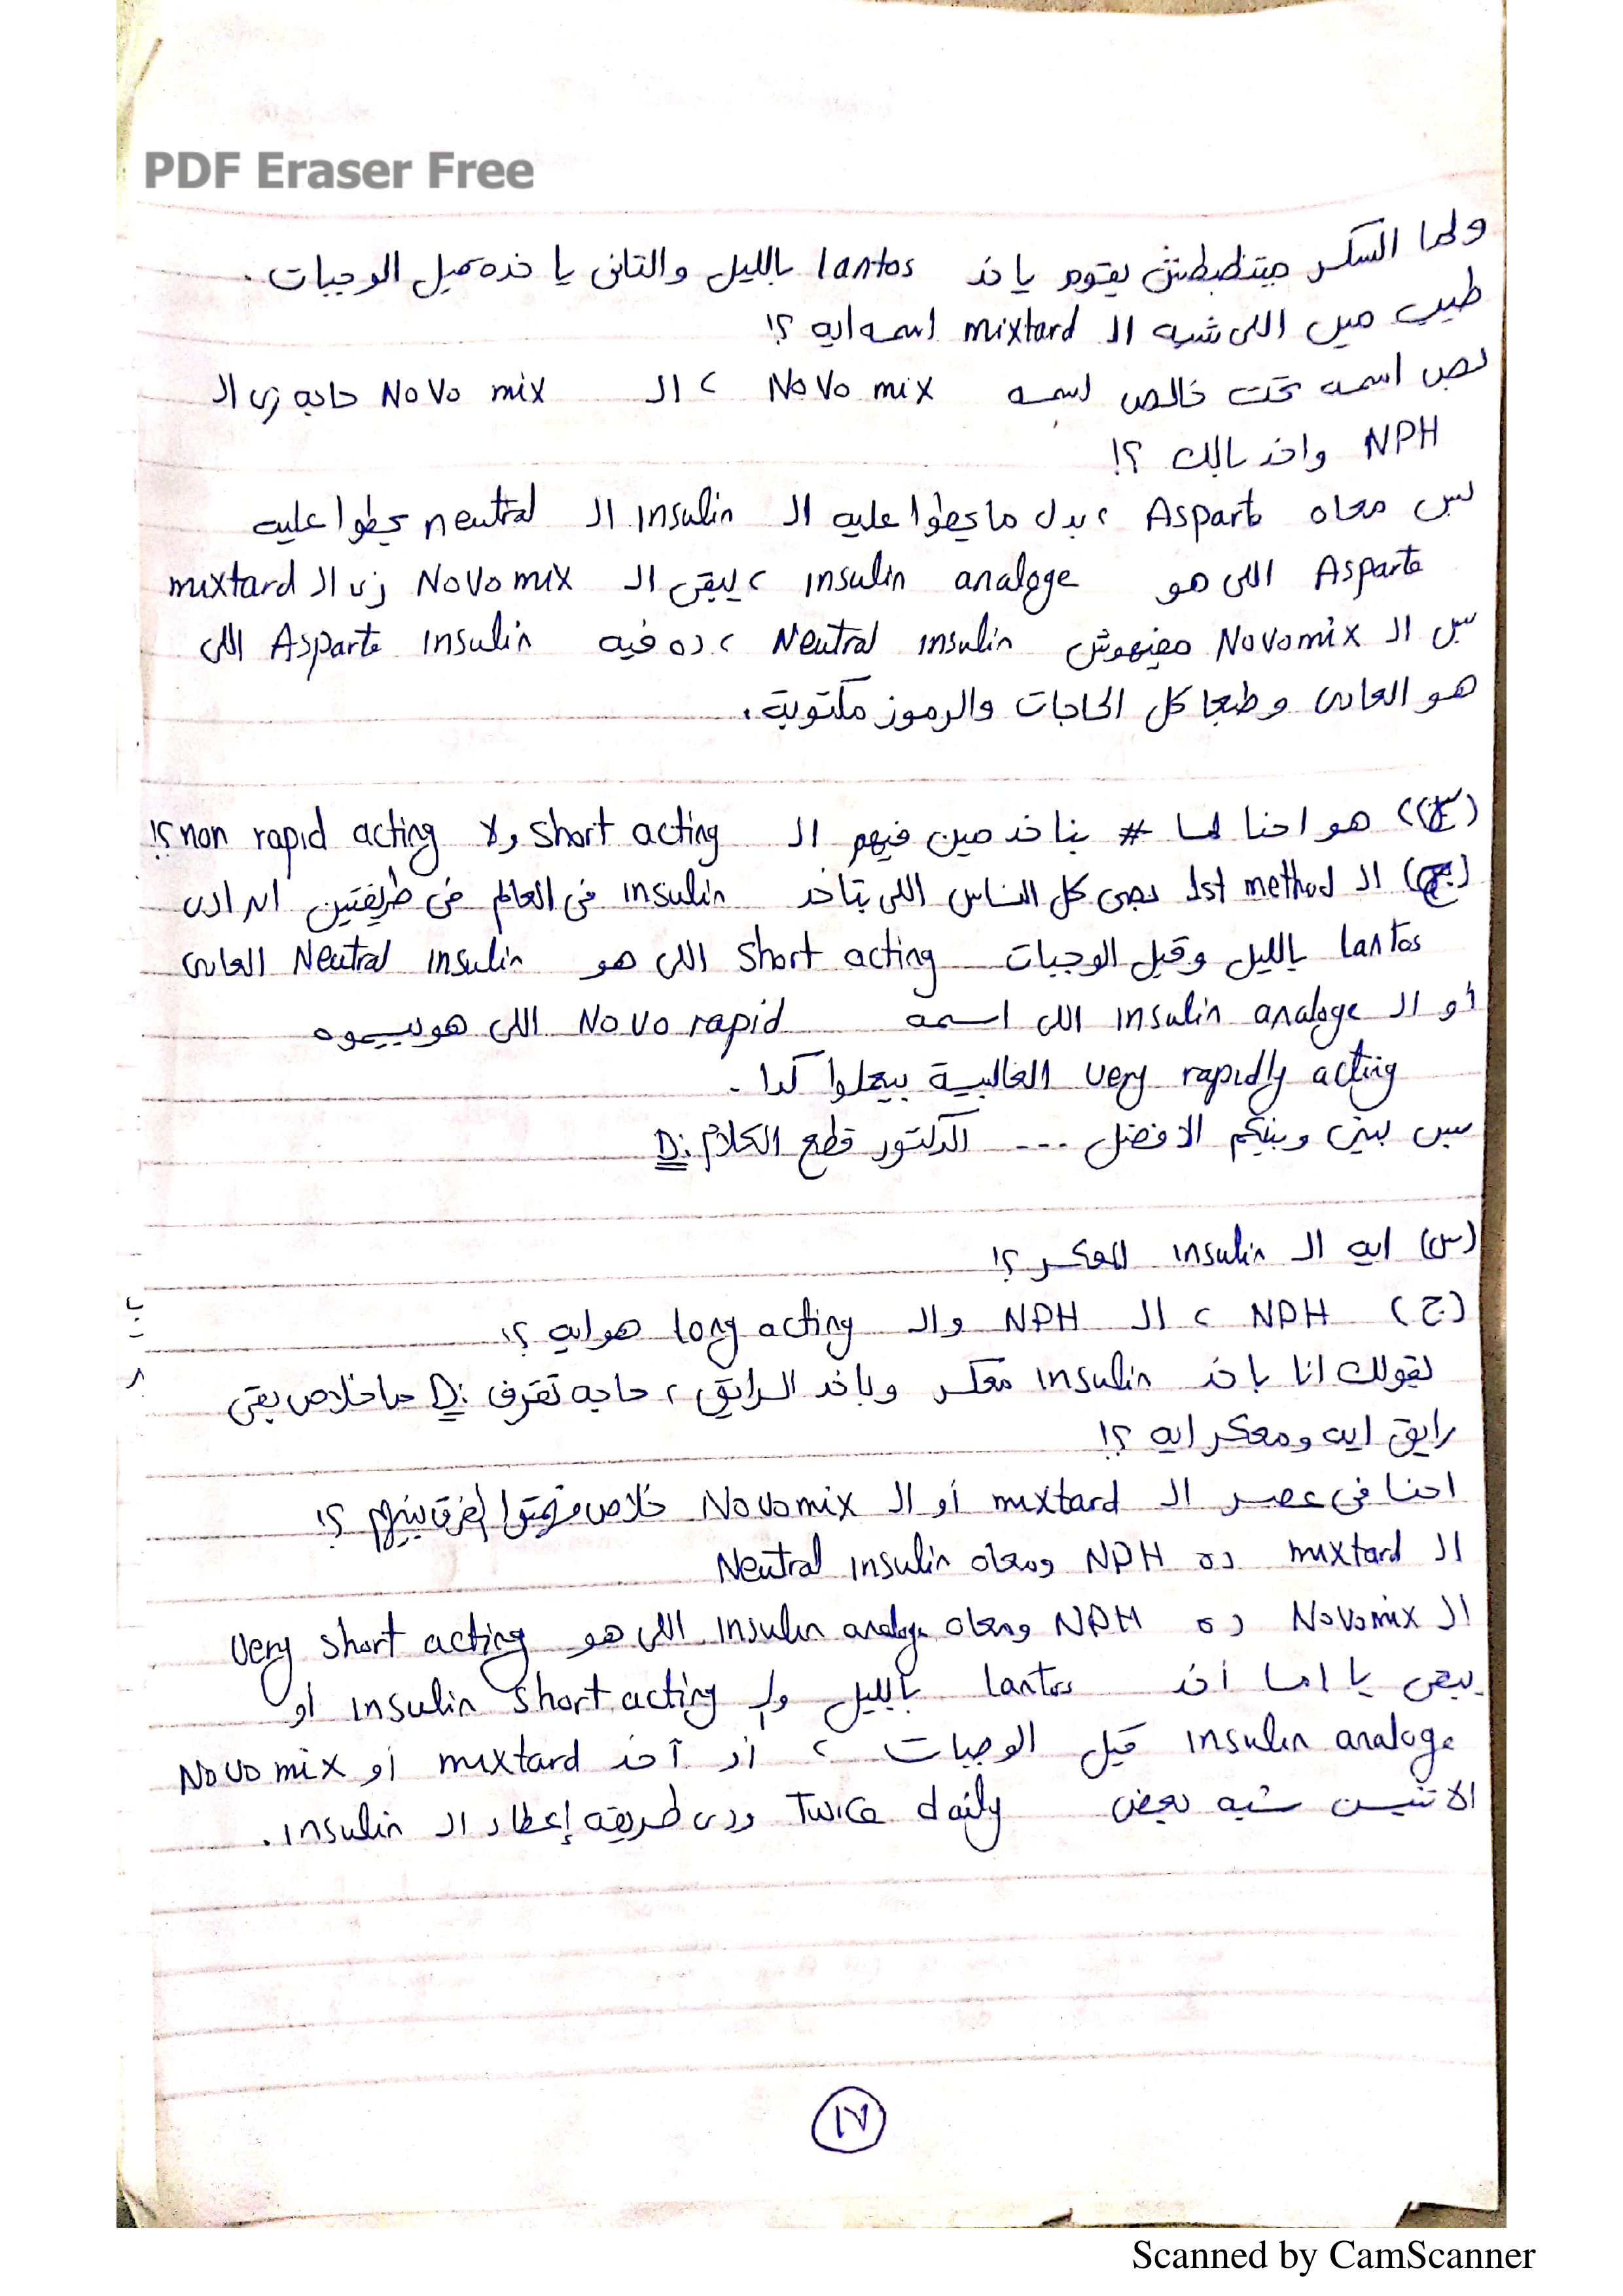 PDF Eraser Free
ولما السكر ميتظبطش يقوم ياخد lantos بالليل والتانى ياخده قبل الوجبات .
طيب مين اللى شبه الـ mixtard اسمه ايه ؟!
بص اسمه تحت خالص اسمه Novo mix ، الـ Novo mix حاجه زى الـ
NPH واخد بالك ؟!
بس معاه Asparte ، بدل ما يحطوا عليه الـ insulin الـ neutral يحطوا عليه
Asparte اللى هو insulin analoge ، يبقى الـ Novomix زى الـ mixtard
بس الـ Novomix مفيهوش Neutral insulin ، ده فيه Asparte insulin اللى
هو العادى وطبعا كل الحاجات والرموز مكتوبة .
(س) هو احنا لما # بناخد مين فيهم الـ short acting ولا non rapid acting ؟!
(ج) الـ 1st method بصى كل الناس اللى بتاخد insulin فى العالم فى طريقتين
lantos بالليل وقبل الوجبات short acting اللى هو Neutral insulin العادى
أو الـ insulin analoge اللى اسمه Novo rapid اللى هو بيسموه
very rapidly acting الغالبية بيعملوا كدا .
بس بينى وبينكم الافضل --- الدكتور قطع الكلام :D
(س) ايه الـ insulin المعكر ؟!
(ج) NPH ، الـ NPH والـ long acting هو ايه ؟!
يقولك انا باخد insulin معكر وباخد الرايق ، حاجه تقرف :D ما خلاص بقى
رايق ايه ومعكر ايه ؟!
احنا فى عصر الـ mixtard أو الـ Novomix خلاص فهمتوا الفرق بينهم ؟!
الـ mixtard ده NPH ومعاه Neutral insulin
الـ Novomix ده NPH ومعاه insulin analoge اللى هو very short acting
يبقى يا اما أخد lantos بالليل و insulin short acting او
insulin analoge قبل الوجبات ، أو آخد mixtard أو Novo mix
الاتنين شبه بعض Twice daily ودى طريقه إعطاء الـ insulin .
١٧
Scanned by CamScanner